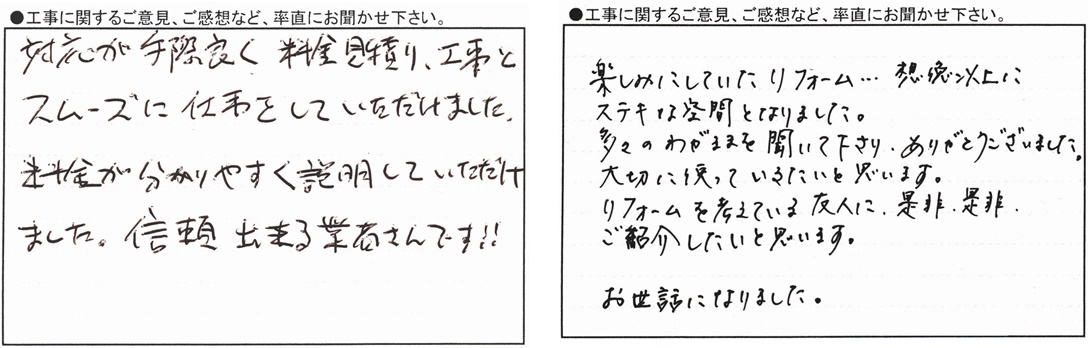 ●工事に関するご意見、ご感想など、率直にお聞かせ下さい。
対応が手際良く 料金見積り、工事と
スムーズに仕事をしていただけました。
料金が分かりやすく説明していただけ
ました。信頼出来る業者さんです!!
●工事に関するご意見、ご感想など、率直にお聞かせ下さい。
楽しみにしていたリフォーム… 想像以上に
ステキな空間となりました。
多々のわがままを聞いて下さり、ありがとうございました。
大切に使っていきたいと思います。
リフォームを考えている友人に、是非、是非、
ご紹介したいと思います。
お世話になりました。